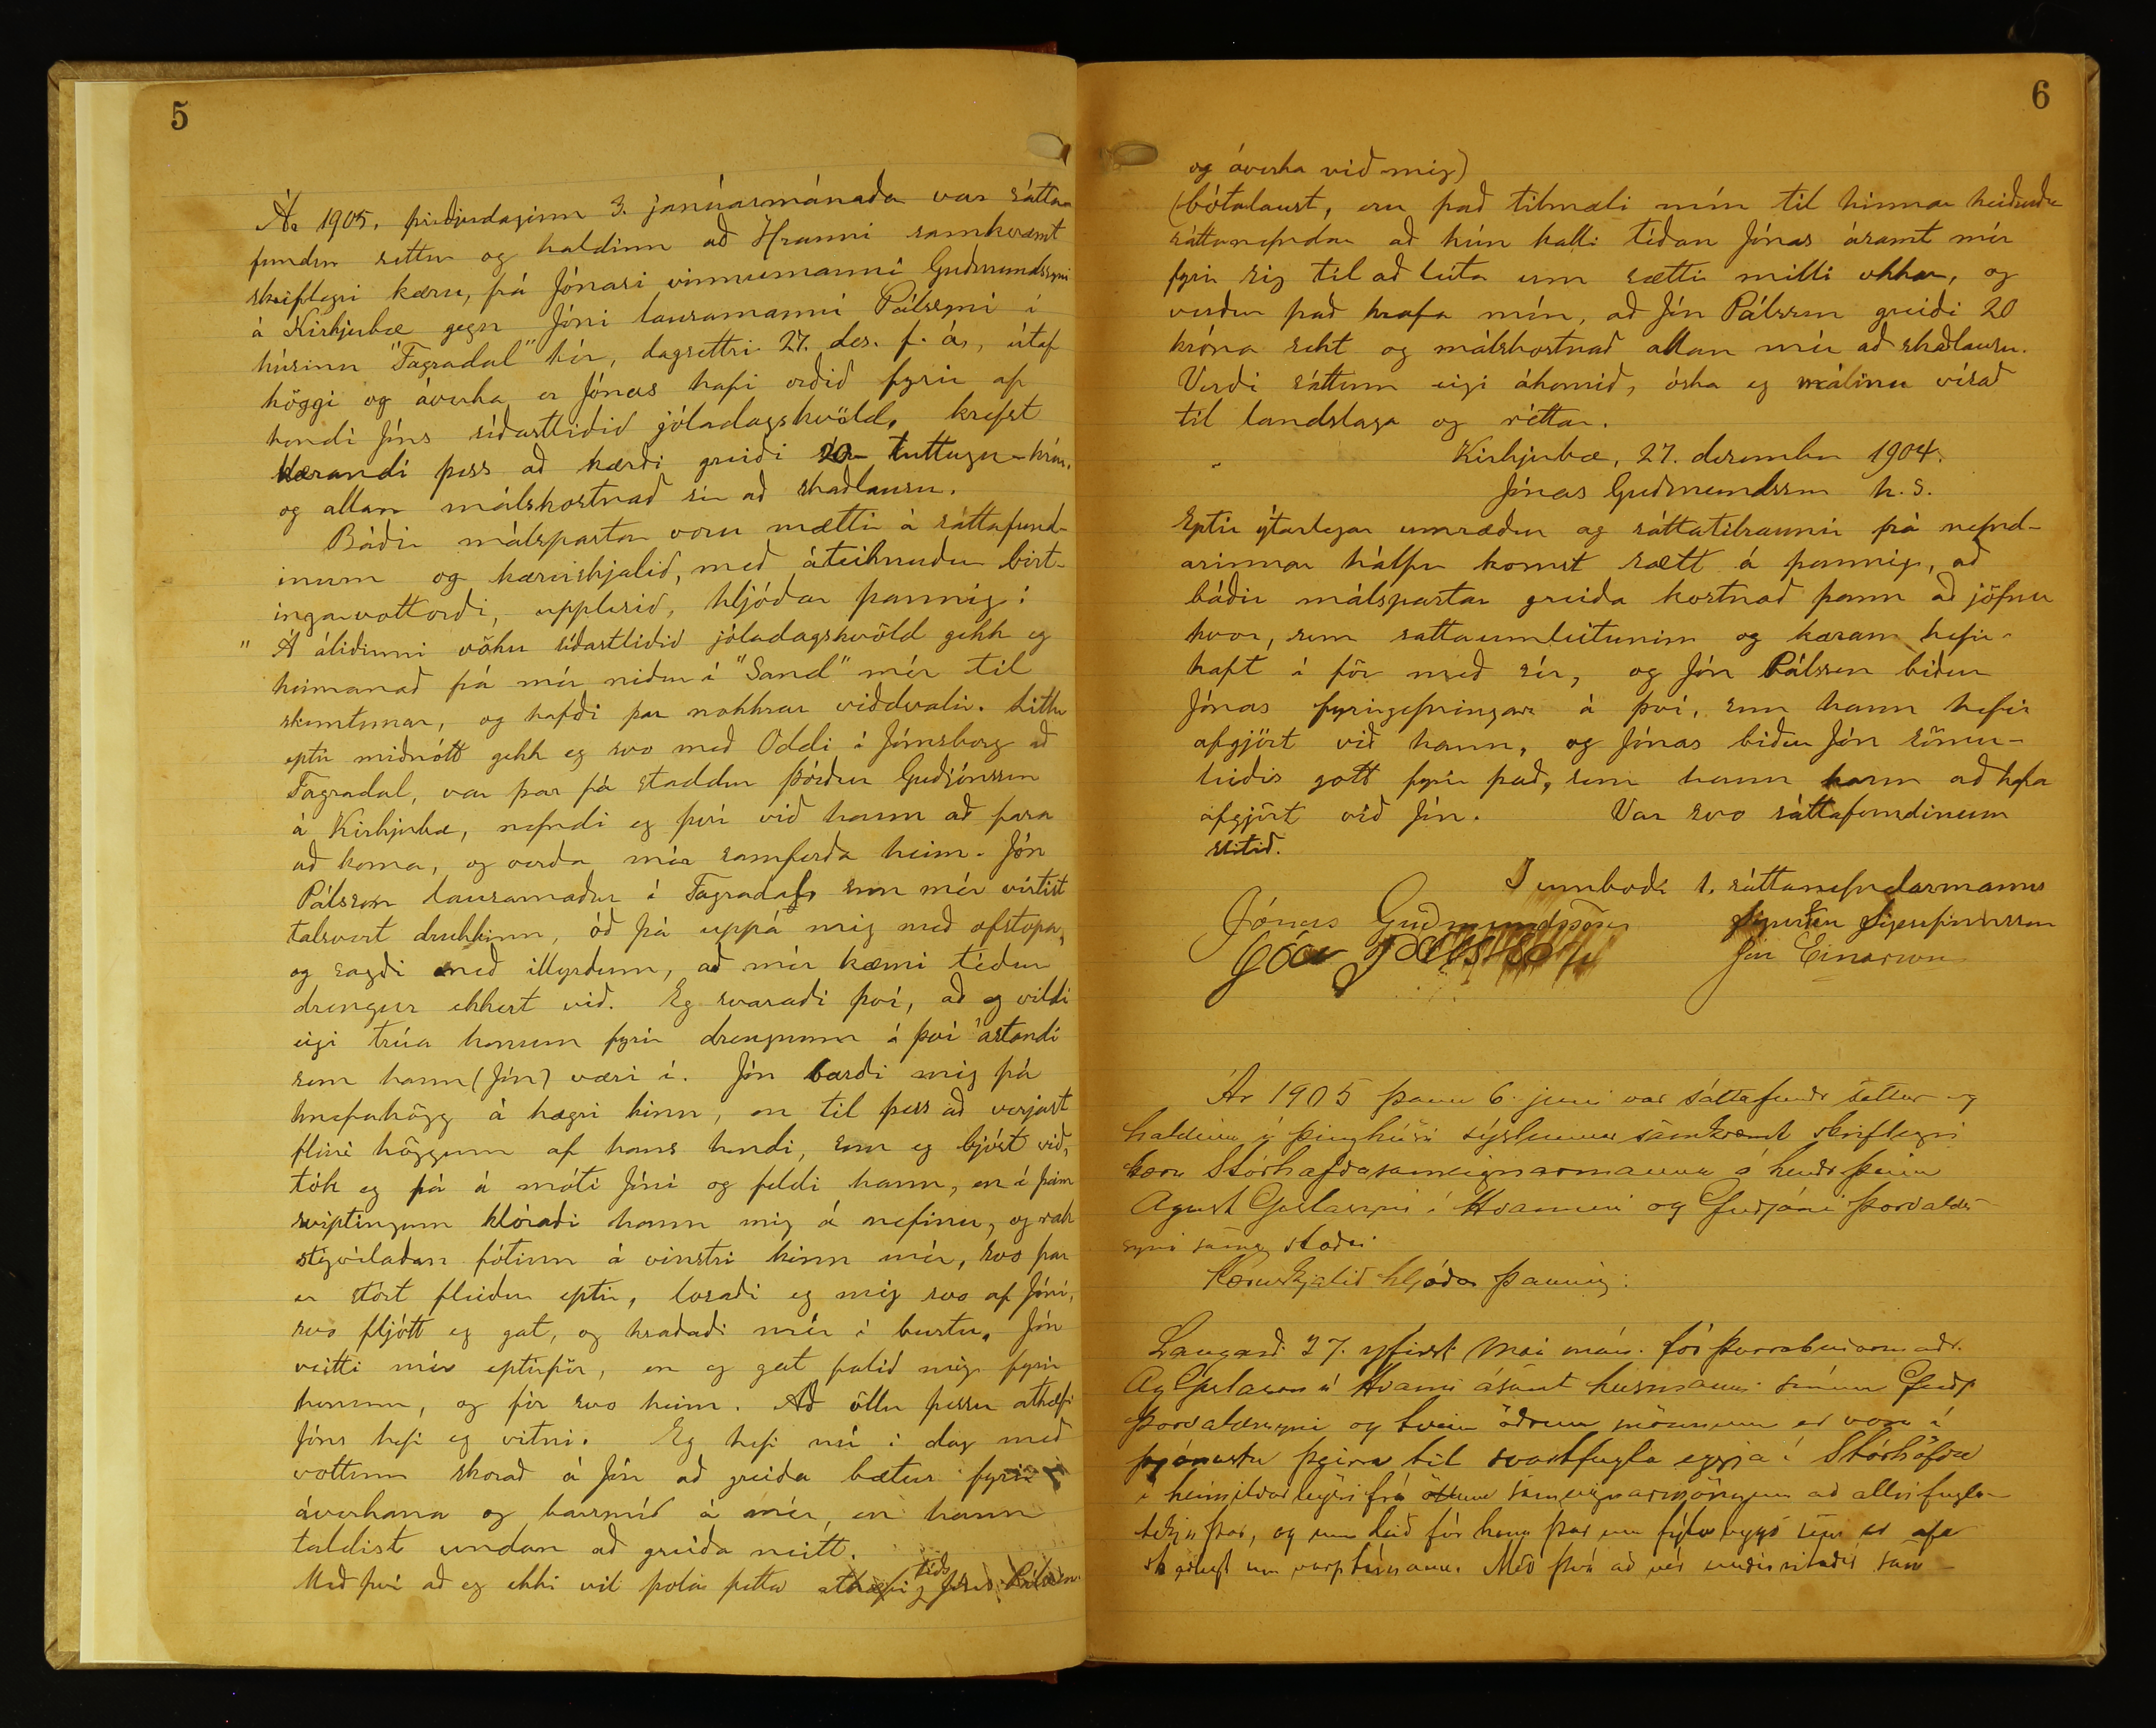 5
Ár 1905, þriðjudaginn 3. janúarmánaðar var sátta-
fundur settur og haldinn að Hrauni samkvæmt
skriflegri kæru, frá Jónasi vinnumanni Guðmundssyni
á Kirkjubæ gegn Jóni lausamanni Pálssyni í
húsinu "Fagradal" hér, dagsettri 27. des. f. ár, útaf
höggi og áverka er Jónas hafi orðið fyrir af
hendi Jóns síðastliðið jóladagskvöld, krefst
kærandi þess að kærði greiði 20 - tuttugu - krón.
og allan málskostnað sér að skaðlausu.
Báðir málspartar voru mættir á sáttafund-
inum og kæruskjalið, með áteiknuðu birt-
ingarvottorði, upplesið, hljóðar þannig:
" Á áliðinni vöku síðastliðið jóladagskvöld gekk eg
heimanað frá mér niður í "Sand" mér til
skemtunar, og hafði þar nokkrar viðdvalir. Litlu
eptir miðnótt gekk eg svo með Oddi í Jómsborg að
Fagradal, var þar þá staddur Þórður Guðjónsson
á Kirkjubæ, nefndi eg því við hann að fara
að koma, og verða mér samferða heim. Jón
Pálsson lausamaður í Fagradal, sem mér virtist
talsvert drukkinn, óð þá uppá mig með ofstopa,
og sagði með illyrðum, að mér kæmi téður
drengur ekkert við. Eg svaraði því, að eg vildi
eigi trúa honum fyrir drengnum í því ástandi
sem hann (Jón) væri í. Jón barði mig þá
hnefahögg á hægri kinn, en til þess að verjast
fleiri höggum af hans hendi, sem eg bjóst við,
tók eg þá á móti Jóni og feldi hann, en í þeim
sviptingum klóraði hann mig á nefinu, og rak
stígvélaðan fótinn á vinstri kinn mér, svo þar
er stórt fleiður eptir, losaði eg mig svo af Jóni,
svo fljótt eg gat, og hraðaði mér í burtu. Jón
veitti mér eptirför, en eg gat falið mig fyrir
honum, og fór svo heim. Að öllu þessu athæfi
Jóns hefi eg vitni. Eg hefi nú í dag með
vottum skorað á Jón að greiða bætur fyrir
áverkana og barsmíð á mér, en hann
taldist undan að greiða neitt.
téðs
Með því að eg ekki vil þola þetta athæfi Jóns Pálssonar
6
og áverka við mig)
(bótalaust, eru það tilmæli mín til hinnar heiðruðu
sáttanefndar að hún kalli téðan Jónas ásamt mér
fyrir sig til að leita um sættir milli okkar, og
verður það krafa mín, að Jón Pálsson greiði 20
króna sekt og málskostnað allan mér að skaðlausu.
Verði sáttum eigi ákomið, óska eg málinu vísað
til landslaga og réttar.
Kirkjubæ, 27. desember 1904.
Jónas Guðmundsson h. s.
Eptir ýtarlegar umræður og sáttatilraunir frá nefnd-
arinnar hálfu komst sætt á þannig, að
báðir málspartar greiða kostnað þann að jöfnu
hvor, sem sáttaumleitunin og kæran hefir
haft í för með sér, og Jón Pálsson biður
Jónas fyrirgefningar á því, sem hann hefir
afgjört við hann, og Jónas biður Jón sömu-
leiðis gott fyrir það, sem hann kann að hafa
afgjört við Jón. Var svo sáttafundinum
slitið.
Í umboði 1. sáttanefndarmanns
Jónas Guðmundsson Sigurður Sigurfinnsson
Jón Pálsson Jón Einarsson
Ár 1905 þann 6. juni var sáttafundr settur og
haldinn í þinghúsi sýslunnar samkvæmt skriflegri
kæru Stórhöfðasameignarmanna á hendr þeim
Ágúst Gíslasyni í Hvammi og Guðjóni Þorvalds-
syni sama staðar.
Kæruskjalið hljóðar þannig:
Laugard. 27. yfirst. Mai mán. fór þurrabúðarmaðr.
Ág Gíslason á Hvammi ásamt húsmanni sínum Guðj.
Þorvaldssyni og tveim öðrum mönnum er voru í
þjónustu þeirra til svartfugla eggja í Stórhöfða
í heimildarleysi frá öllum sameignarmönnum að allri fugla-
tekju þar, og um leið fór hann þar um fýlabyggð sem er afar
skaðlegt um varptímann. Með því að vér undirritaðir sam-